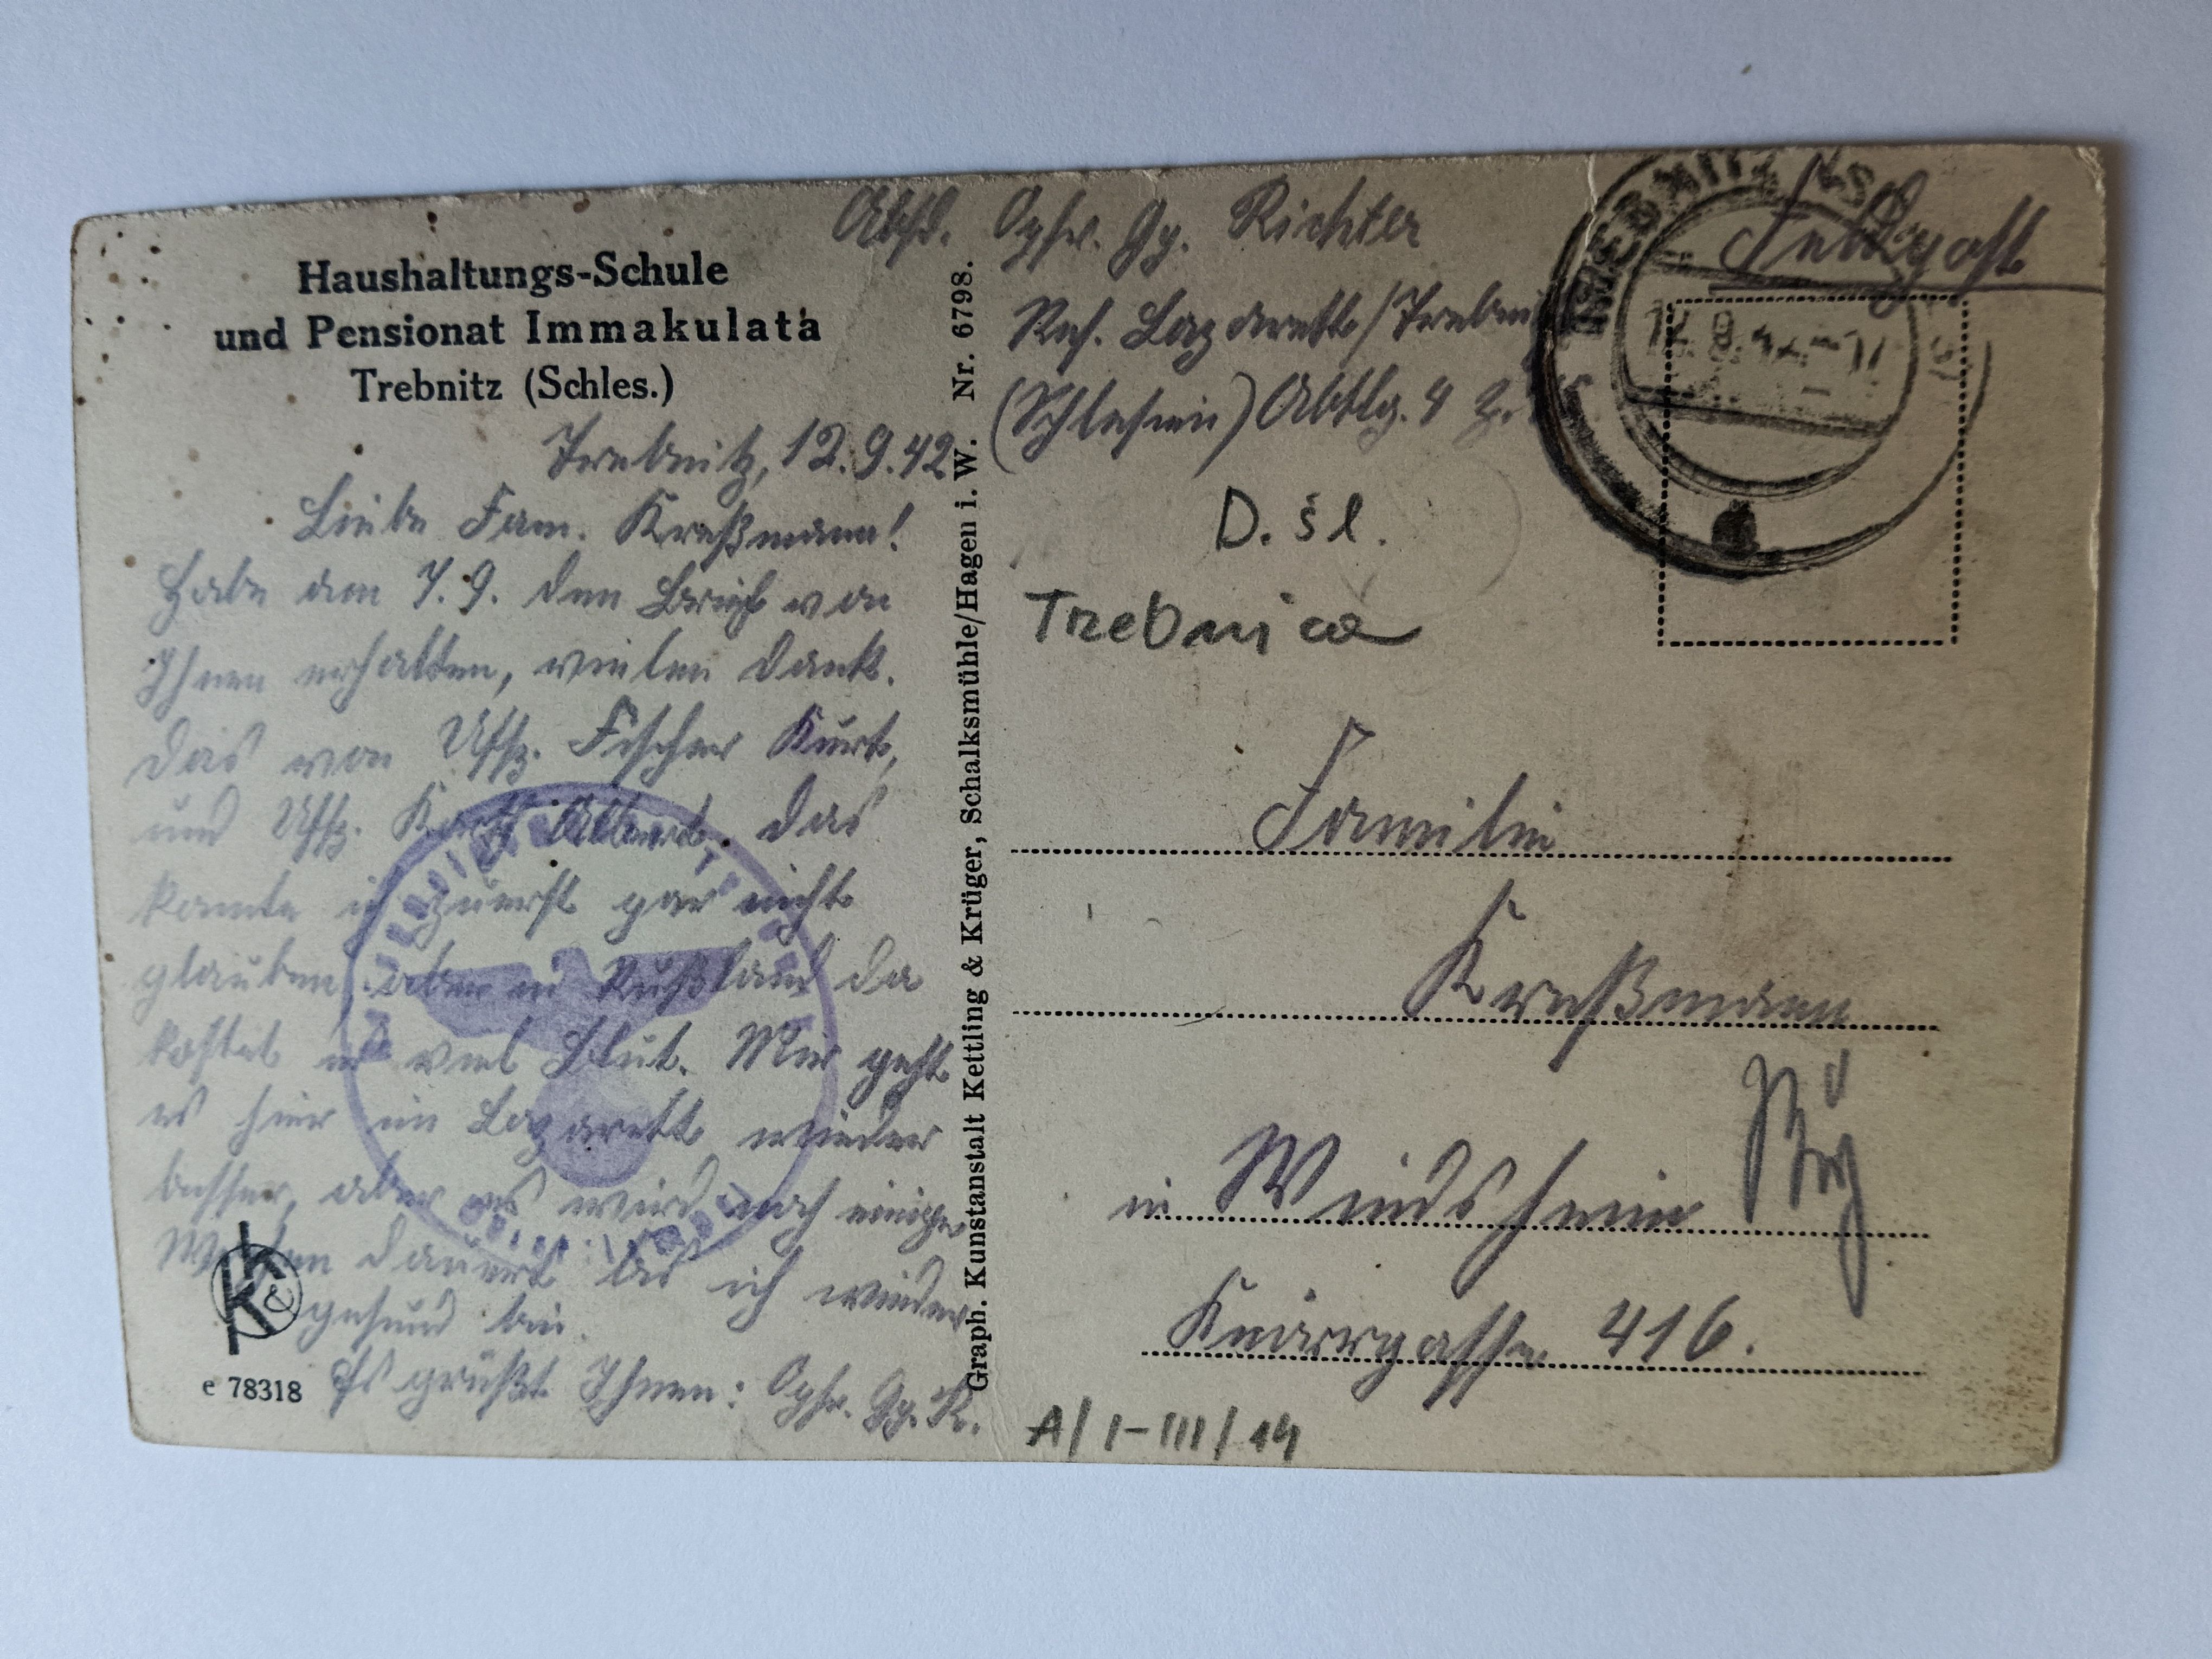 Haushaltungs-Schule
und Pensionat Immakulata
Trebnitz (Schles.)
Trebnitz, 12.9.42
Liebe Fam. Kreßmann!
Habe am 7.9. den Brief von
Ihnen erhalten, vielen Dank.
Das von Uffz. Fischer Kurt,
und Uffz. Albert das
konnte ich zuerst gar nicht
glauben aber in Rußland da
kostet es viel Blut. Mir geht
es hier im Lazarett wieder
besser, aber es wird noch einige
Wochen dauern bis ich wieder
gesund bin.
Es grüßt Ihnen: Ogfr. Gg. R.
K & K
e 78318
Graph. Kunstanstalt Kettling & Krüger, Schalksmühle/Hagen i. W. Nr. 6798.
Absd. Ogfr. Gg. Richter
Res. Lazarett/Trebnitz
(Schlesien) Abtlg. 4 Z.
Feldpost
TREBNITZ (SCHLES)
12.9.42-11
D. śl.
Trebnica
Familie
Kreßmann
in Windsheim
Knörrgasse 416.
A/I-III/14